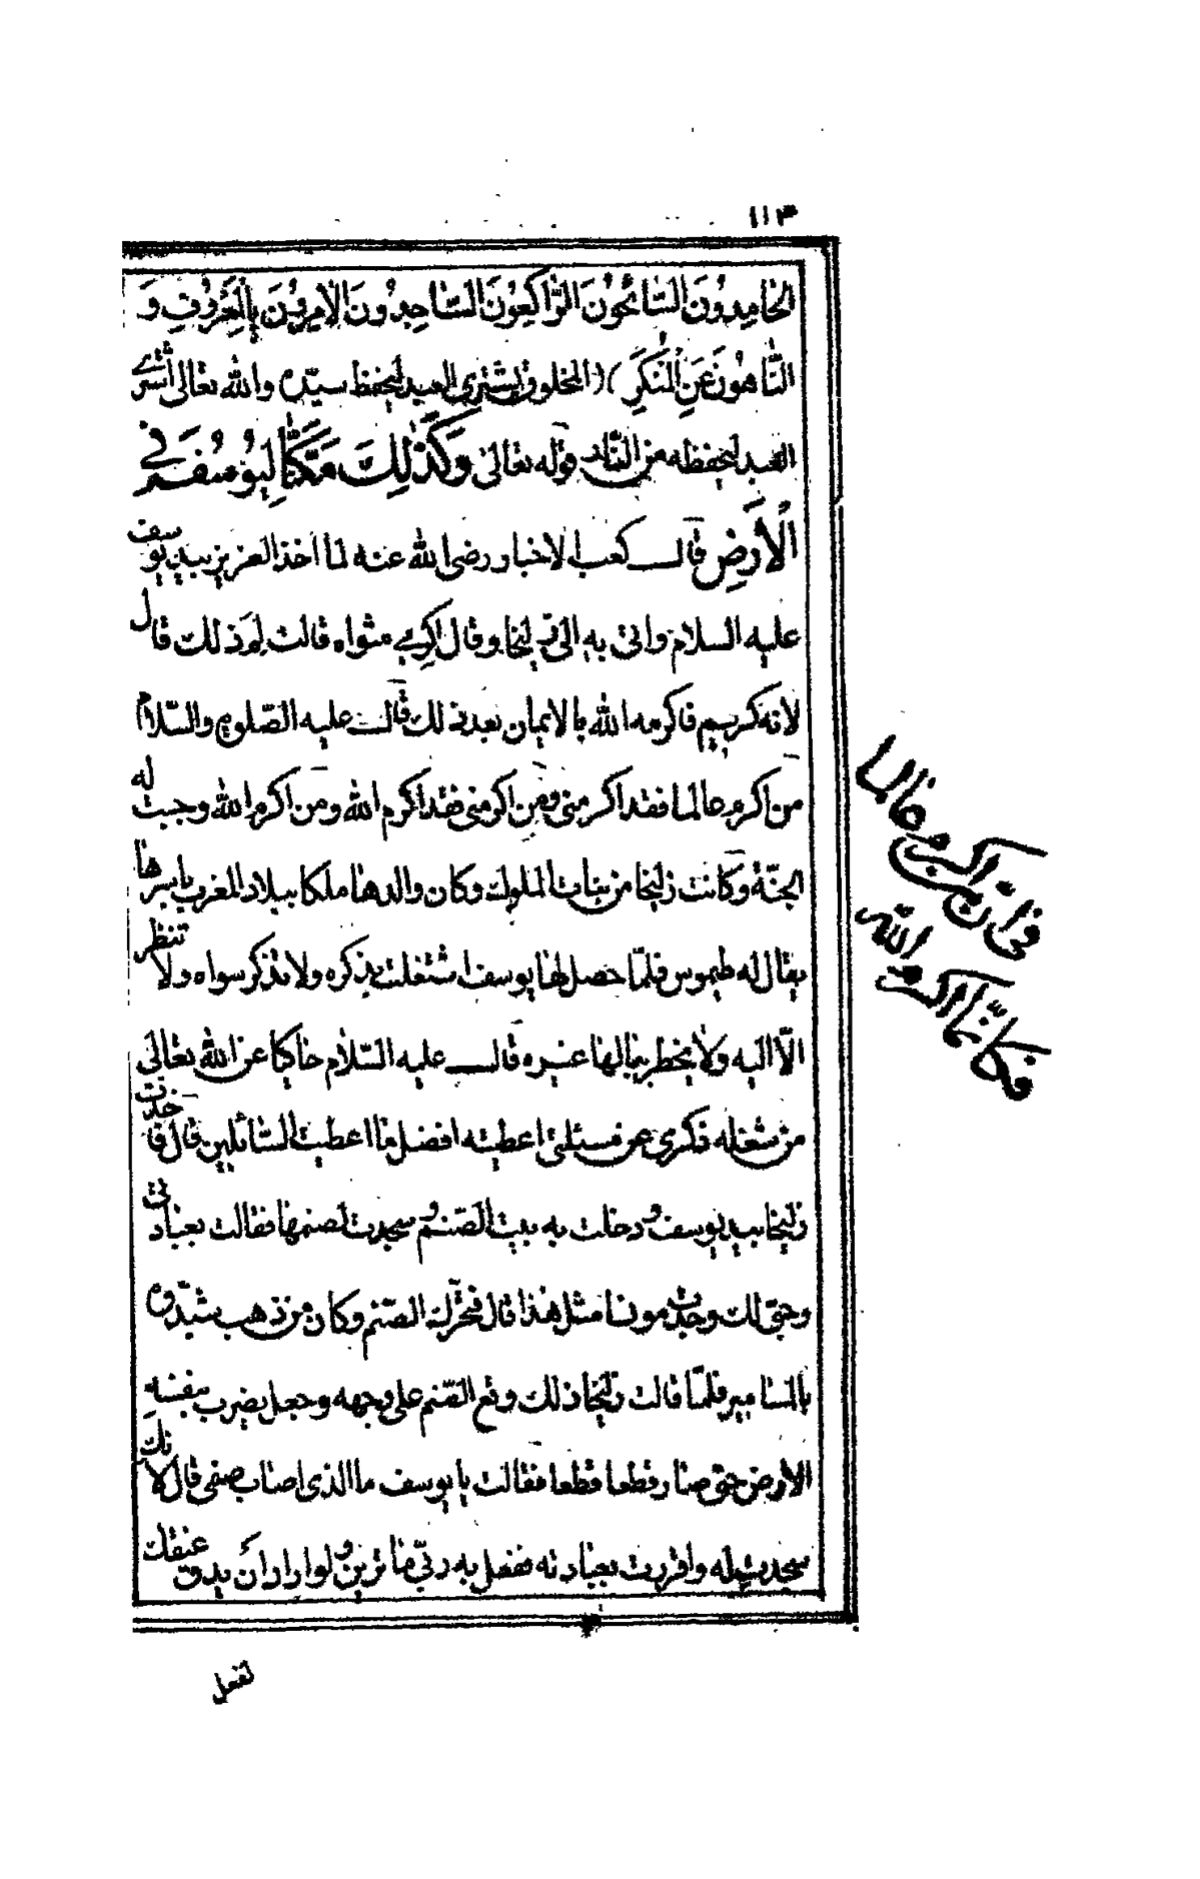 ١١٣
الحامِدُونَ السَّائحُونَ الرَّاكِعُونَ السَّاجِدُونَ الآمِرُونَ بِالْمَعْرُوفِ وَ
النَّاهُونَ عَنِ الْمُنْكَرِ المخلوق يشترى العبد ليحفظ سيّده والله تعالى اشترى
العبد ليحفظه من النّار قوله تعالى وَكَذٰلِكَ مَكَّنَّا لِيُوسُفَ فِي
الْأَرْضِ قال كعب الاخبار رضى الله عنه لما اخذ العزيز بيد يوسف
عليه السلام واتى به الى زليخا وقال اكرمي مثواه قالت لم ذلك قال
لانه كريم فاكرمه الله بالايمان بعد ذلك قال عليه الصّلوة والسّلام
من اكرم عالما فقد اكرمنى ومن اكرمنى فقد اكرم الله ومن اكرم الله وجبت له
الجنّة وكانت زليخا من بنات الملوك وكان والدها ملكا ببلاد المغرب باسرها
يقال له طيموس فلمّا حصل لها يوسف اشتغلت بذكره ولا تذكر سواه ولا تنظر
الّا اليه ولا يخطر ببالها غيره قال عليه السّلام حاكيا عن الله تعالى
من شغله ذكرى عن مسئلتى اعطيته افضل ما اعطيت السّائلين قال فاخذت
زليخا بيد يوسف ودخلت به بيت الصّنم وسجدت لصنمها فقالت بعبادتى
وحبّى لك وجدت مونسا مثل هذا قال فتحرّك الصّنم وكان من ذهب شدّوه
بالمسامير فلمّا قالت زليخا ذلك وقع الصّنم على وجهه وجعل يضرب بنفسه
الارض حتى صار قطعا قطعا فقالت يا يوسف ما الذى اصاب صنمى قال لانك
سجدت له واقررت بعبادته ففعل به ربّى ما ترين ولو اراد ان يدق عنقك
لفعل
فى اكرم عالما
فكانّما اكرم الله